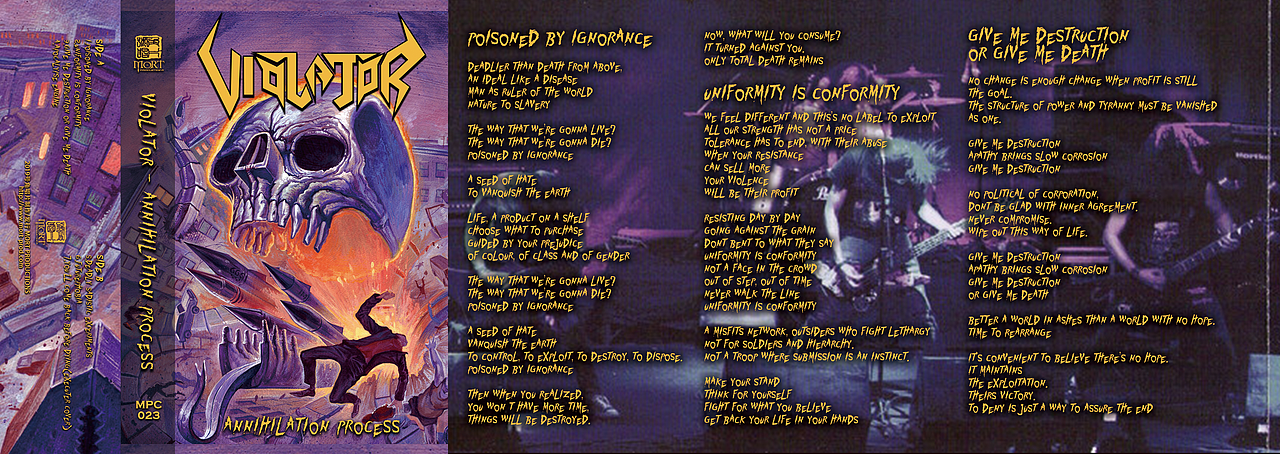 SIDE A
POISONED BY IGNORANCE
UNIFORMITY IS CONFORMITY
GIVE ME DESTRUCTION OR GIVE ME DEATH
SIDE B
MORT
VIOLATOR - ANNIHILATION PROCESS
MPC
023
VIOLATOR
ANNIHILATION PROCESS
POISONED BY IGNORANCE
DEADLIER THAN DEATH FROM ABOVE,
AN IDEAL LIKE A DISEASE
MAN AS RULER OF THE WORLD
NATURE TO SLAVERY
THE WAY THAT WE'RE GONNA LIVE?
THE WAY THAT WE'RE GONNA DIE?
POISONED BY IGNORANCE
A SEED OF HATE
TO VANQUISH THE EARTH
LIFE, A PRODUCT ON A SHELF
CHOOSE WHAT TO PURCHASE
GUIDED BY YOUR PREJUDICE
OF COLOUR, OF CLASS AND OF GENDER
THE WAY THAT WE'RE GONNA LIVE?
THE WAY THAT WE'RE GONNA DIE?
POISONED BY IGNORANCE
A SEED OF HATE
VANQUISH THE EARTH
TO CONTROL, TO EXPLOIT, TO DESTROY, TO DISPOSE.
POISONED BY IGNORANCE
THEN WHEN YOU REALIZED,
YOU WON'T HAVE MORE TIME,
THINGS WILL BE DESTROYED.
NOW, WHAT WILL YOU CONSUME?
IT TURNED AGAINST YOU,
ONLY TOTAL DEATH REMAINS
UNIFORMITY IS CONFORMITY
WE FEEL DIFFERENT AND THIS'S NO LABEL TO EXPLOIT
ALL OUR STRENGTH HAS NOT A PRICE
TOLERANCE HAS TO END, WITH THEIR ABUSE
WHEN YOUR RESISTANCE
CAN SELL MORE
YOUR VIOLENCE
WILL BE THEIR PROFIT
RESISTING DAY BY DAY
GOING AGAINST THE GRAIN
DONT BENT TO WHAT THEY SAY
UNIFORMITY IS CONFORMITY
NOT A FACE IN THE CROWD
OUT OF STEP, OUT OF TIME
NEVER WALK THE LINE
UNIFORMITY IS CONFORMITY
A MISFITS NETWORK, OUTSIDERS WHO FIGHT LETHARGY
NOT FOR SOLDIERS AND HIERARCHY,
NOT A TROOP WHERE SUBMISSION IS AN INSTINCT,
MAKE YOUR STAND
THINK FOR YOURSELF
FIGHT FOR WHAT YOU BELIEVE
GET BACK YOUR LIFE IN YOUR HANDS
GIVE ME DESTRUCTION
OR GIVE ME DEATH
NO CHANGE IS ENOUGH CHANGE WHEN PROFIT IS STILL
THE GOAL.
THE STRUCTURE OF POWER AND TYRANNY MUST BE VANISHED
AS ONE.
GIVE ME DESTRUCTION
APATHY BRINGS SLOW CORROSION
GIVE ME DESTRUCTION
NO POLITICAL OF CORPORATION,
DONT BE GLAD WITH INNER AGREEMENT,
NEVER COMPROMISE,
WIPE OUT THIS WAY OF LIFE.
GIVE ME DESTRUCTION
APATHY BRINGS SLOW CORROSION
GIVE ME DESTRUCTION
OR GIVE ME DEATH
BETTER A WORLD IN ASHES THAN A WORLD WITH NO HOPE,
TIME TO REARRANGE
IT'S CONVENIENT TO BELIEVE THERE'S NO HOPE,
IT MAINTAINS
THE EXPLOITATION,
THEIRS VICTORY,
TO DENY IS JUST A WAY TO ASSURE THE END